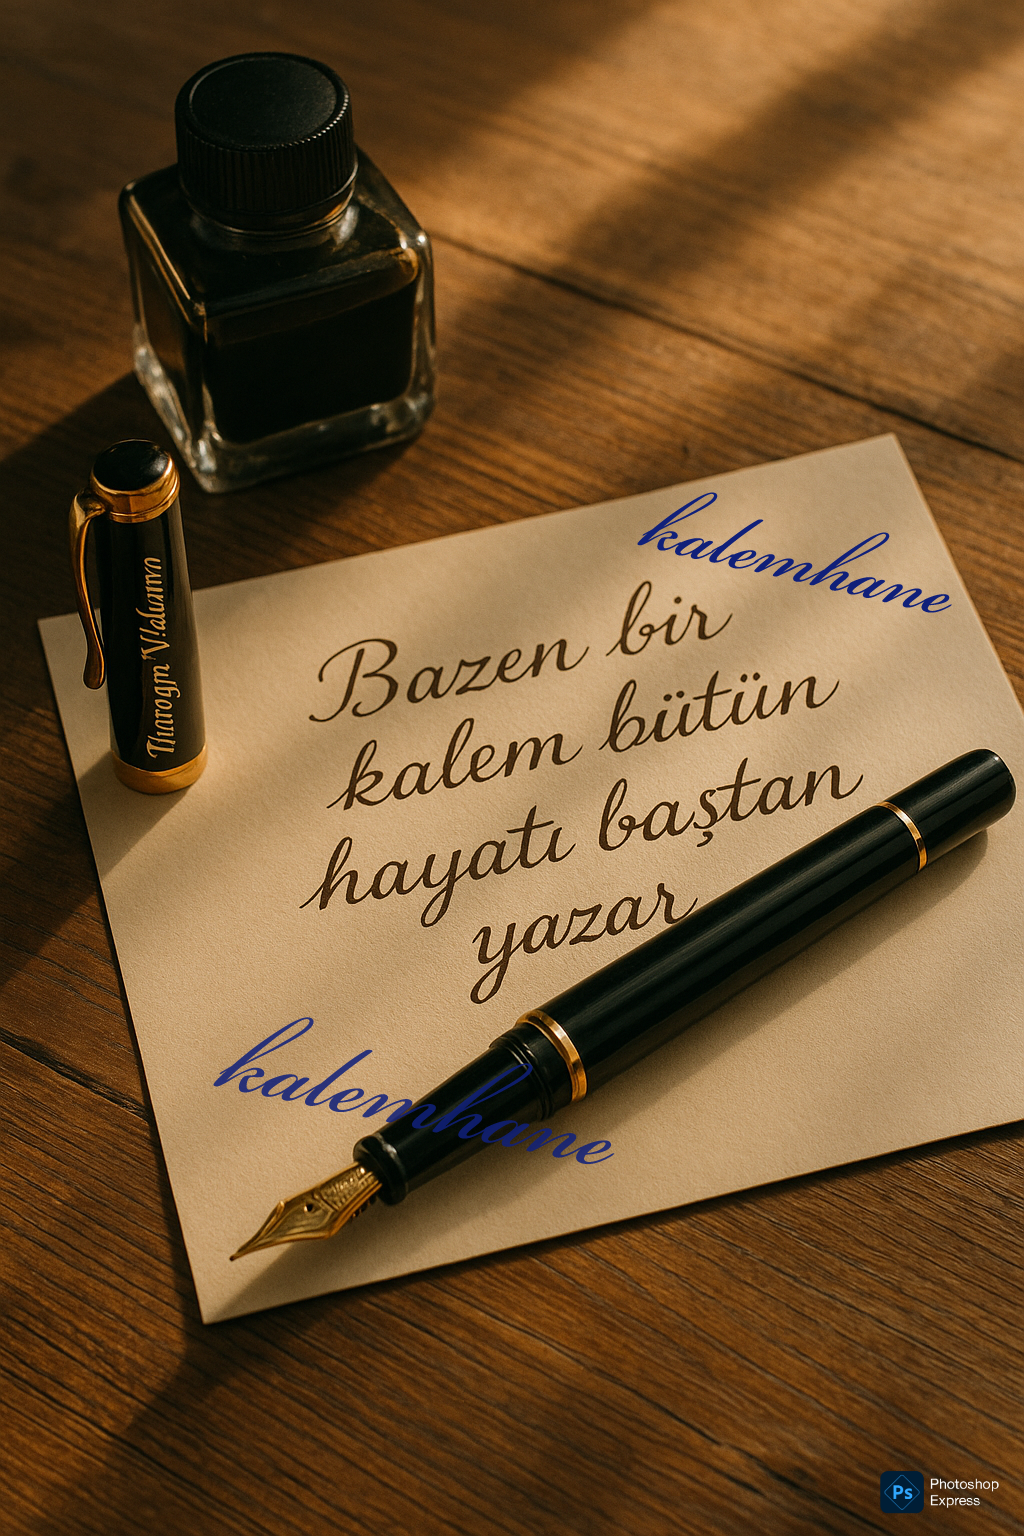 kalemhane
Bazen bir
kalem bütün
hayatı baştan
yazar
kalemhane
Photoshop
Express
Ps